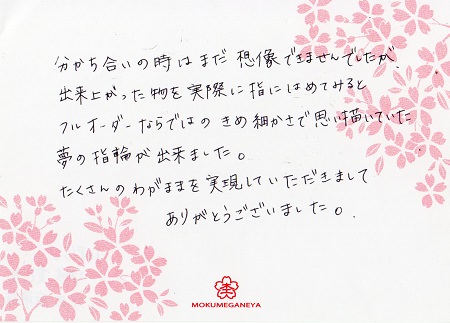 分かち合いの時はまだ想像できませんでしたが
出来上がった物を実際に指にはめてみると
フルオーダーならではのきめ細かさで思い描いていた
夢の指輪が出来ました。
たくさんのわがままを実現していただきまして
ありがとうございました。
MOKUMEGANEYA